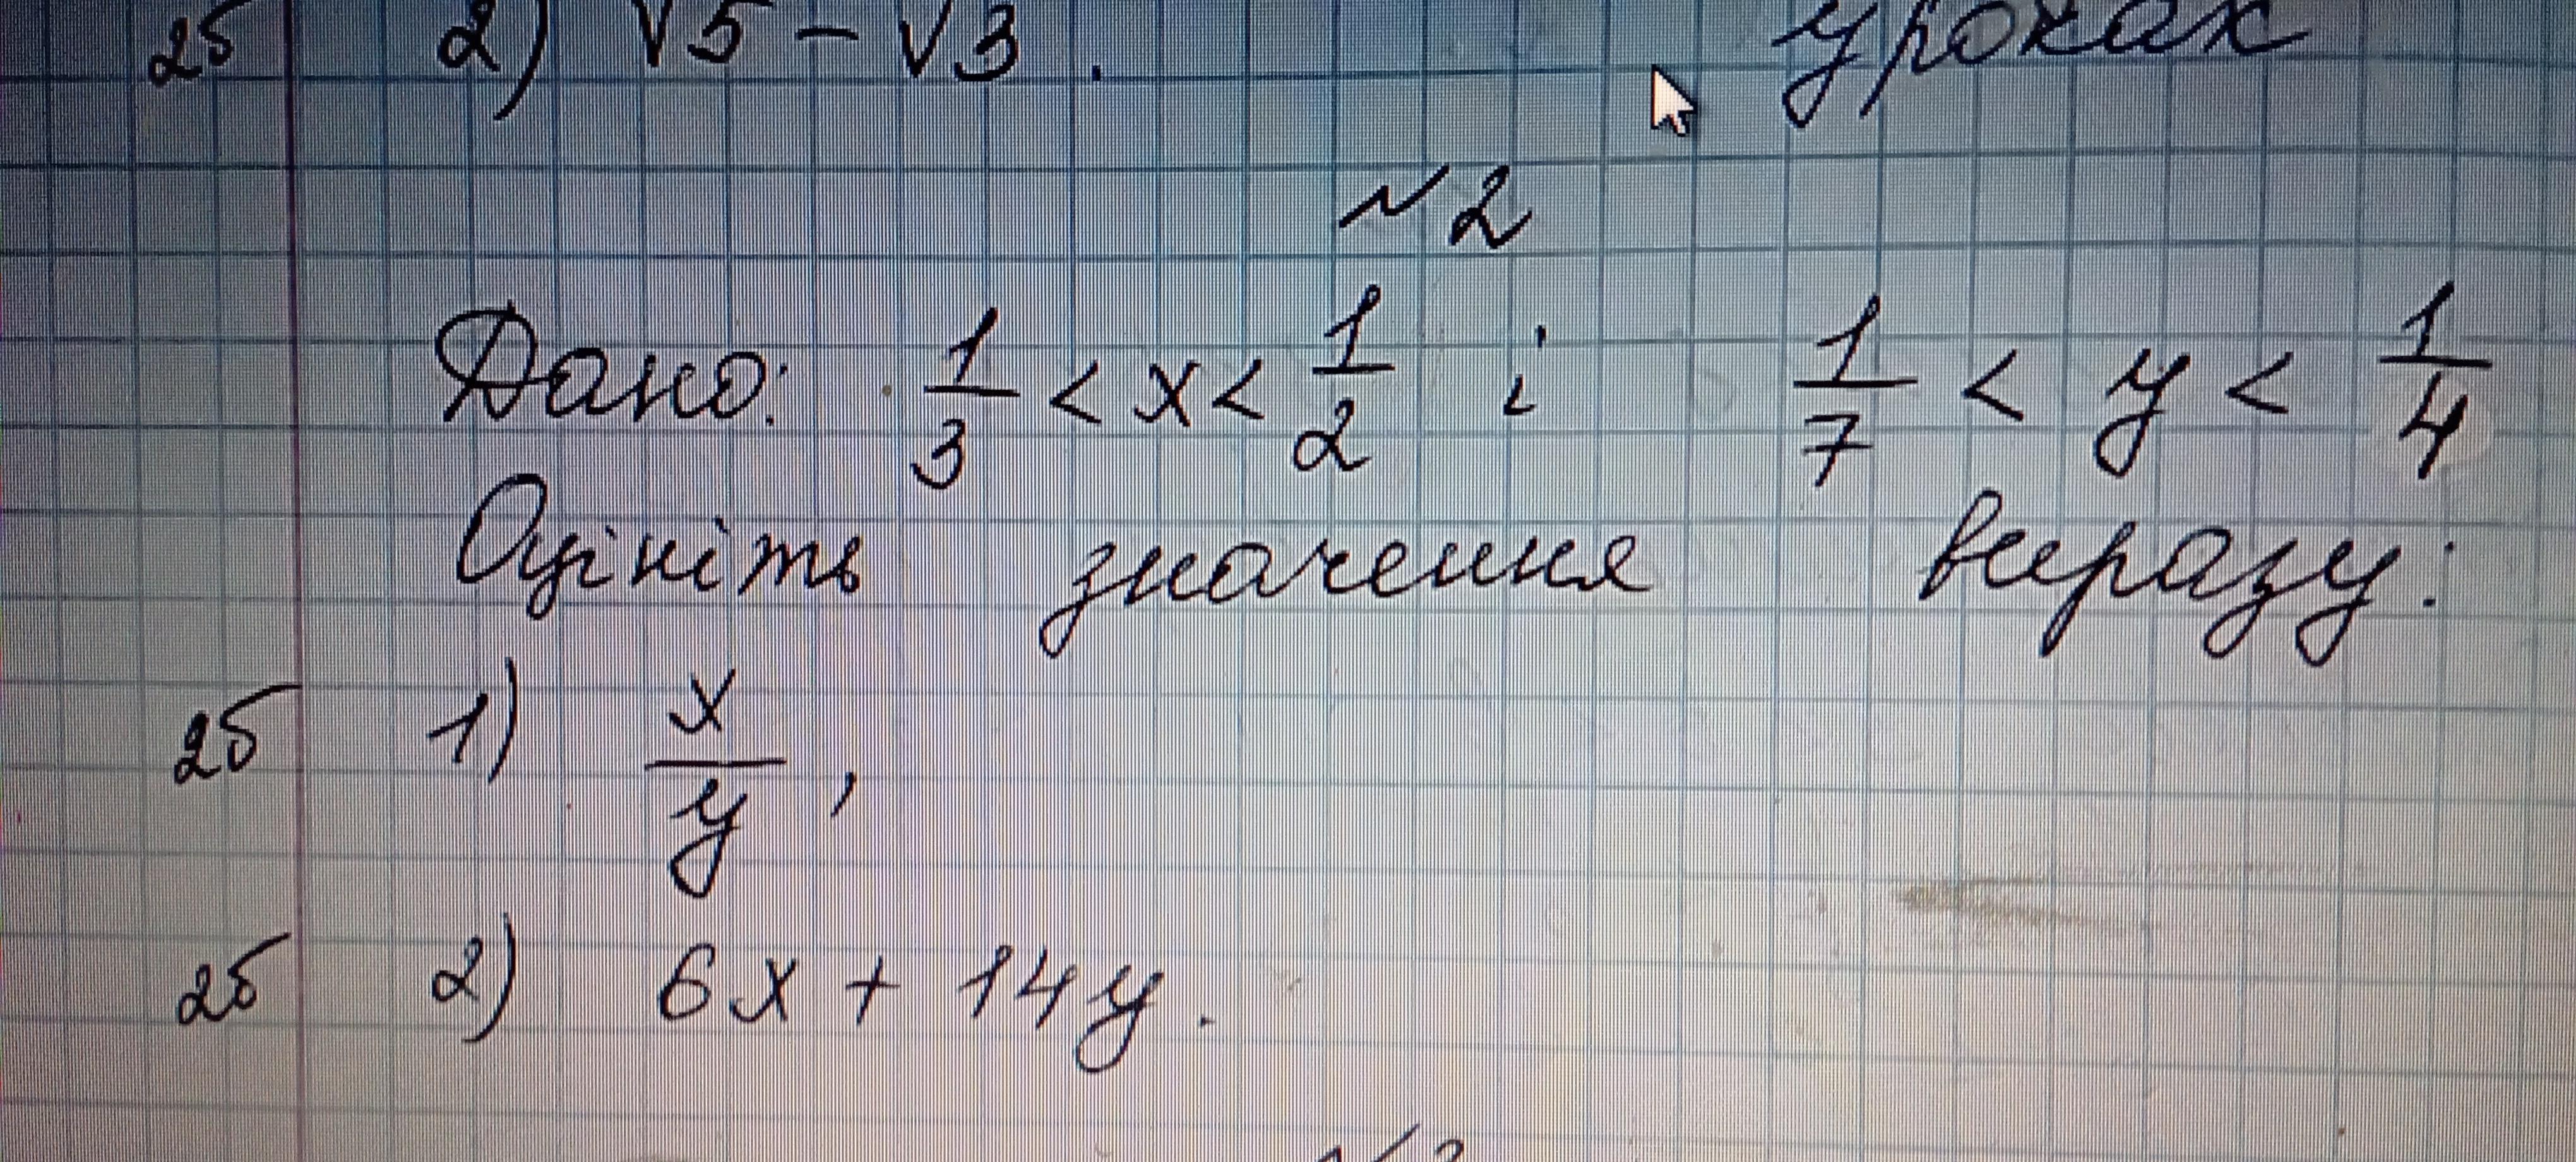 2б 2) √5 − √3 . уроках
№2
Дано: 1/3 < x < 1/2 і 1/7 < y < 1/4
Оцініть значення виразу:
2б 1) x/y ,
2б 2) 6x + 14y .